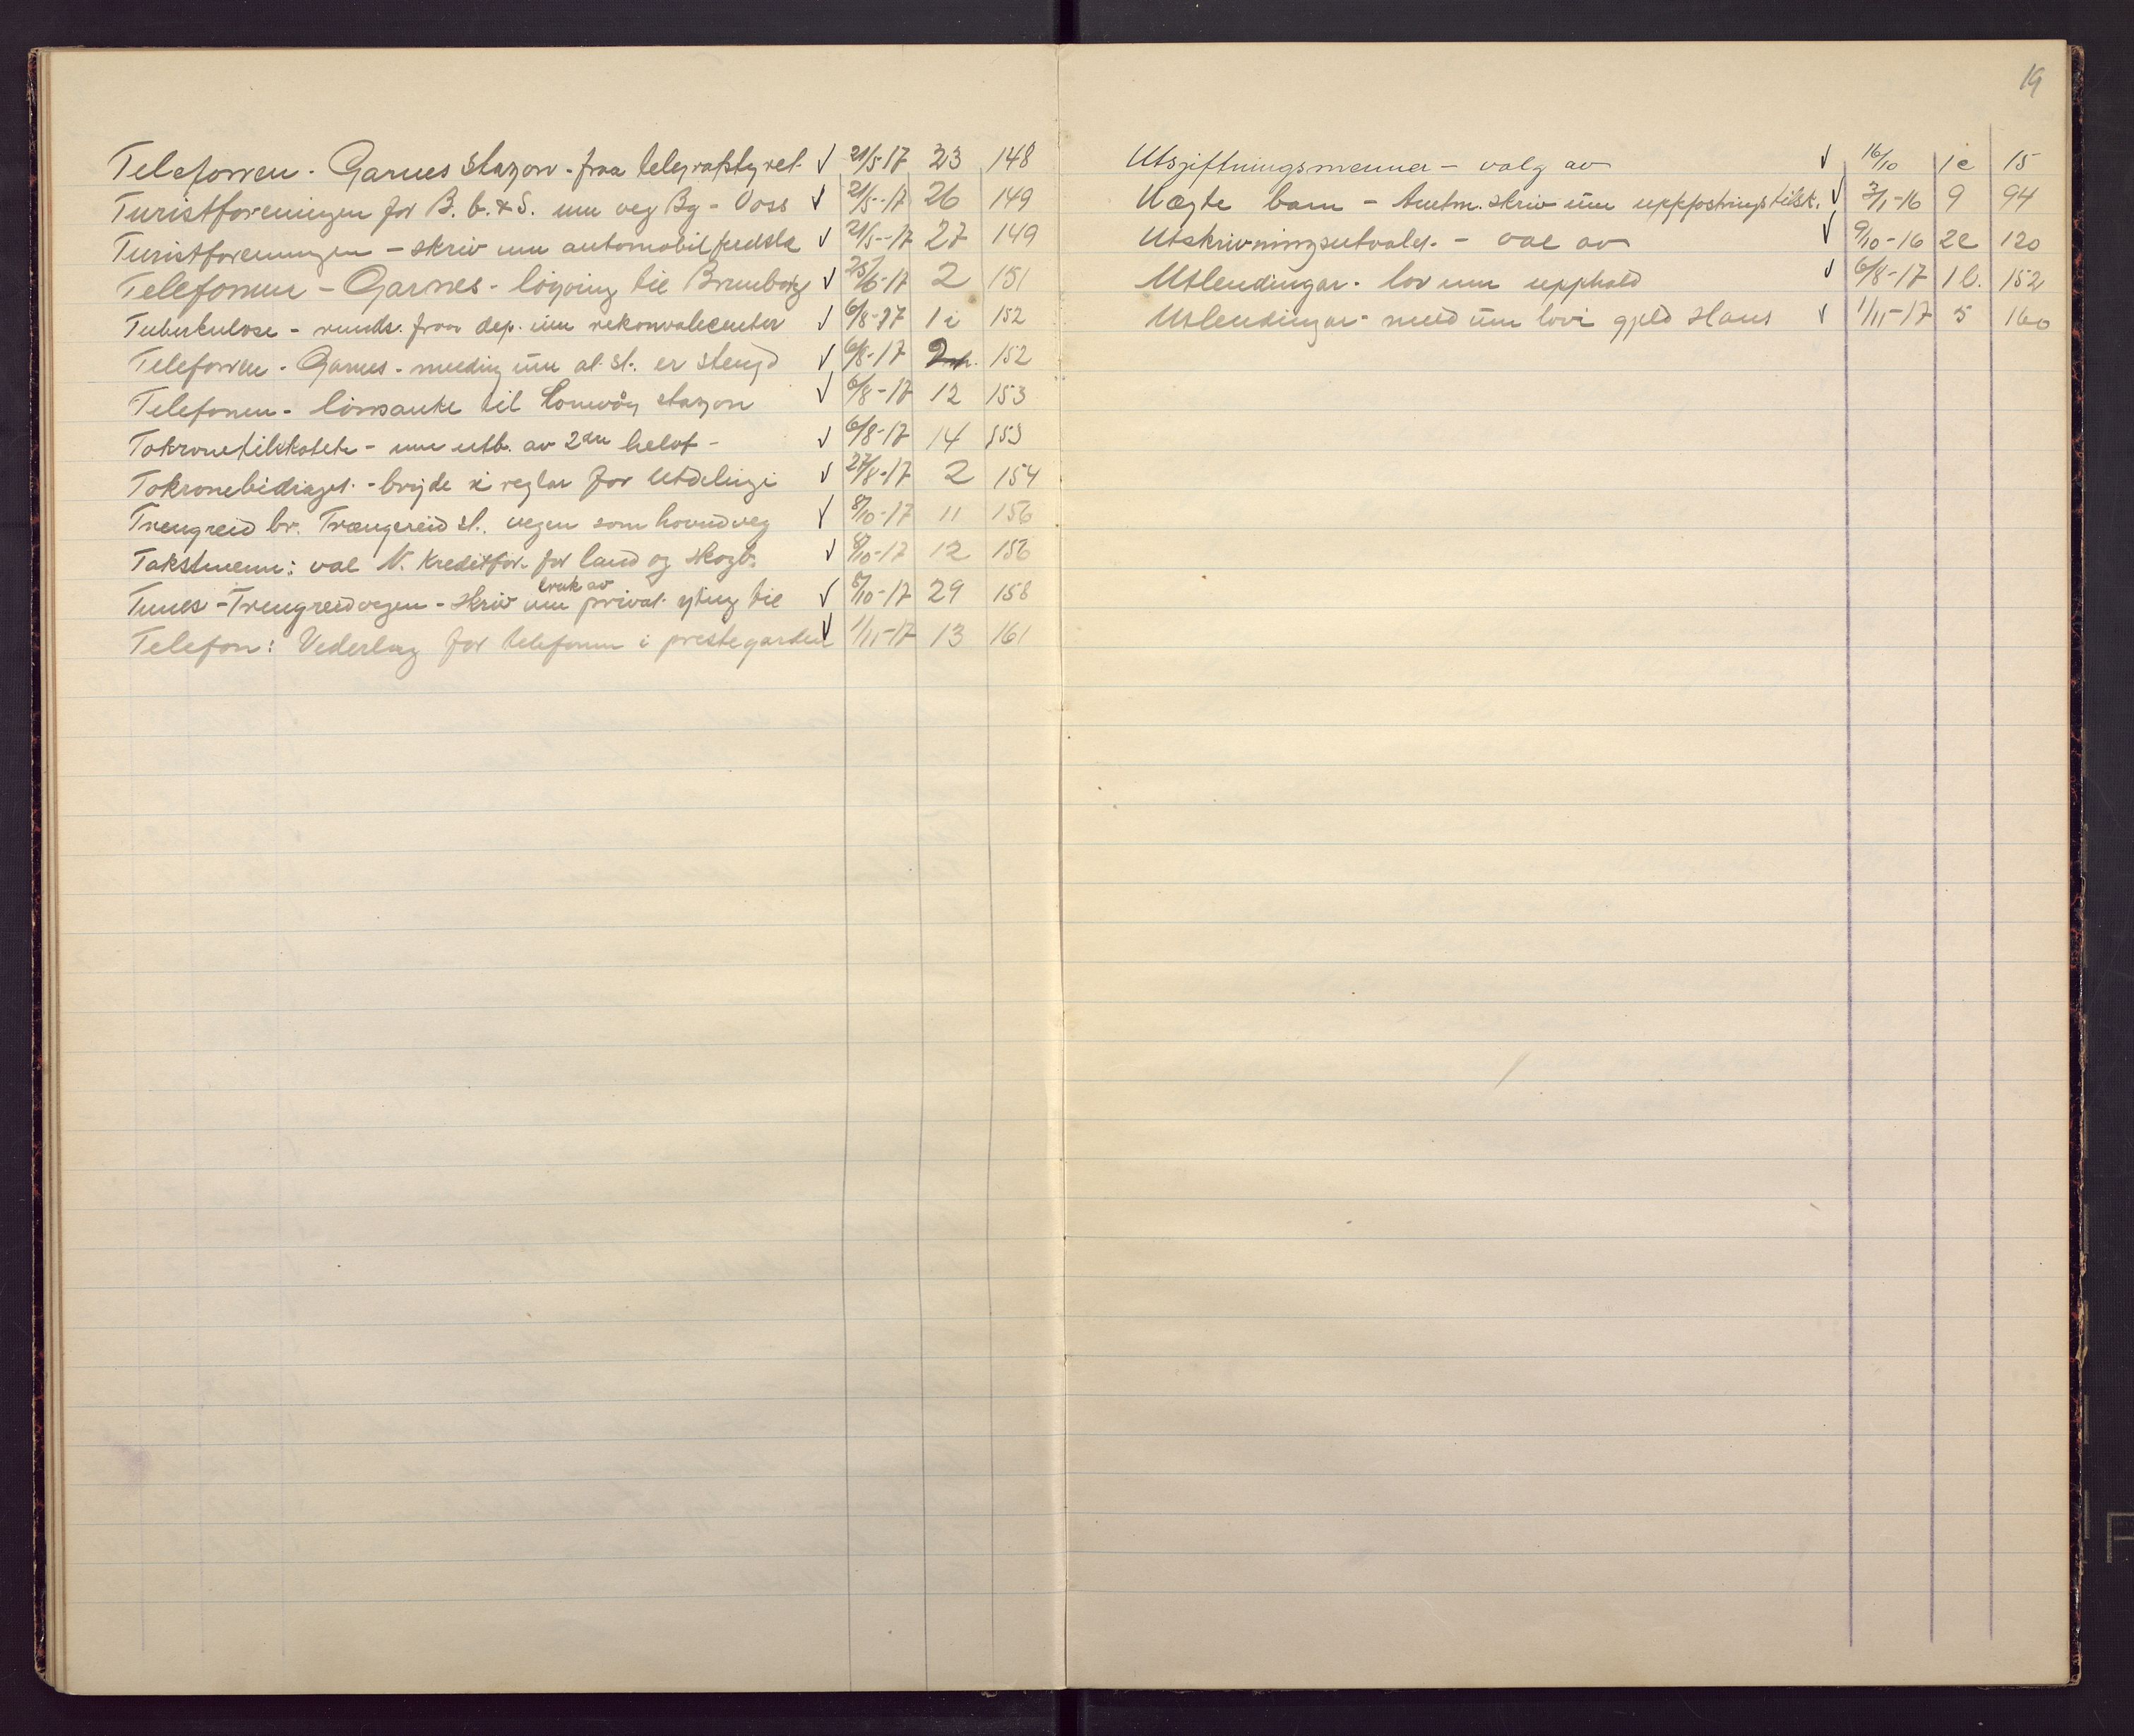 Telefonen. Garnes stasjon. fraa telegrafstyret. √ 21/5-17 23 148
Turistforeningen for B. b. & S. um veg Bg - Voss √ 21/5-17 26 149
Turistforeningen - skriv um automobilferdsla √ 21/5-17 27 149
Telefonen - Garnes - til √ 25/6-17 2 151
Tuberkulose - runds. fraa dep. um rekonvalecenter √ 6/8-17 1 i 152
Telefonen - Garnes - melding um at st. er stengd √ 6/8-17 2 152
Telefonen - til stasjon √ 6/8-17 12 153
Tokronetilskotet - um utb. av 2dre helvt - √ 6/8-17 14 153
Tokronebidraget - brigde i reglar for utdelingi √ 27/8-17 2 154
Trengreid br. Trængereid st. vegen som hovudveg √ 8/10-17 11 156
Takstmenn: val N. Kreditfor. for land og skogb. √ 8/10-17 12 156
Tunes - Trengreidvegen - skriv um bruk av privat yting til √ 8/10-17 29 158
Telefon: Vederlag for telefonen i prestegarden √ 1/11-17 13 161
19
Utsjiftningsmenner - valg av √ 16/10 1c 15
Uægte barn - Amtm. skriv um uppfostringstilsk. √ 3/1-16 9 94
Utskrivningsutvalet - val av √ 9/10-16 2c 120
Utlendingar - lov um upphald √ 6/8-17 1 b. 152
Utlendingar - um lovi gjeld Haus √ 1/11-17 5 160